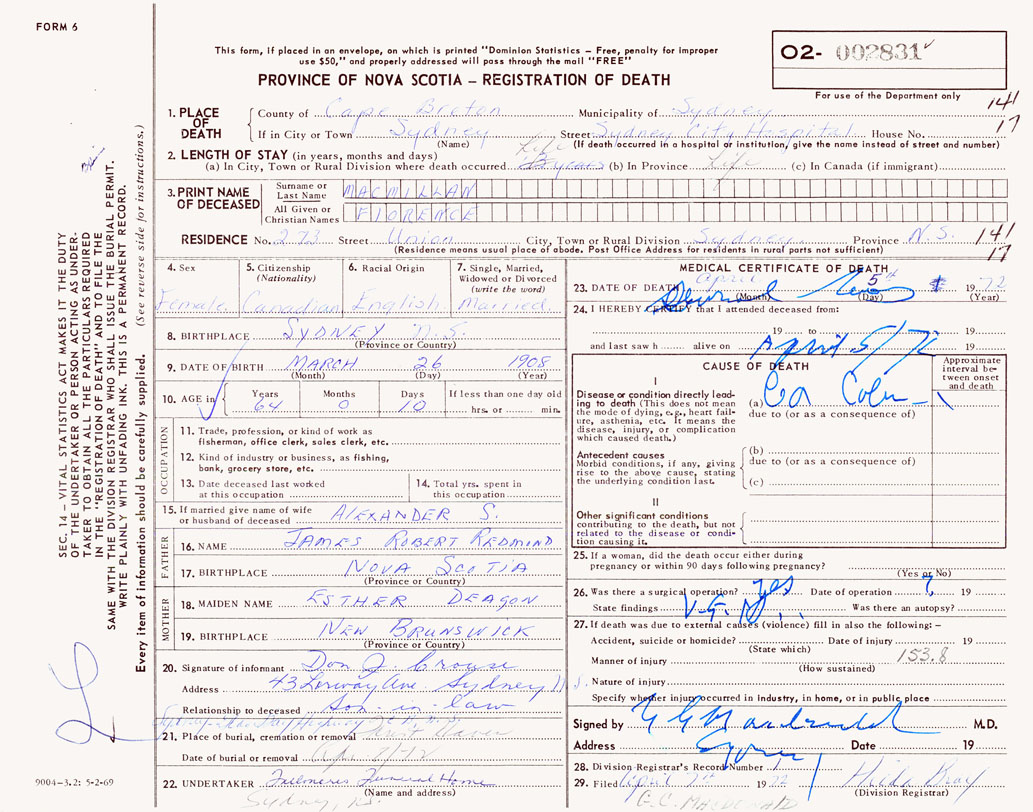 FORM 6
This form, if placed in an envelope, on which is printed "Dominion Statistics – Free, penalty for improper
use $50," and properly addressed will pass through the mail "FREE"
PROVINCE OF NOVA SCOTIA – REGISTRATION OF DEATH
O2- 002831
For use of the Department only
141
17
1. PLACE OF DEATH
County of Cape Breton Municipality of Sydney
If in City or Town Sydney Street Sydney City Hospital House No.
(Name) (If death occurred in a hospital or institution, give the name instead of street and number)
2. LENGTH OF STAY (in years, months and days)
Life
(a) In City, Town or Rural Division where death occurred years (b) In Province Life (c) In Canada (if immigrant)
3. PRINT NAME OF DECEASED
Surname or Last Name MACMILLAN
All Given or Christian Names FLORENCE
RESIDENCE No. 273 Street Union City, Town or Rural Division Sydney Province N.S. 141
(Residence means usual place of abode. Post Office Address for residents in rural parts not sufficient) 17
4. Sex 5. Citizenship (Nationality) 6. Racial Origin 7. Single, Married, Widowed or Divorced (write the word)
Female Canadian English Married
8. BIRTHPLACE SYDNEY N.S.
(Province or Country)
9. DATE OF BIRTH MARCH 26 1908
(Month) (Day) (Year)
10. AGE in Years Months Days If less than one day old
64 0 10 hrs. or min.
OCCUPATION
11. Trade, profession, or kind of work as
fisherman, office clerk, sales clerk, etc.
12. Kind of industry or business, as fishing,
bank, grocery store, etc.
13. Date deceased last worked at this occupation
14. Total yrs. spent in this occupation
15. If married give name of wife
or husband of deceased ALEXANDER S.
FATHER
16. NAME JAMES ROBERT REDMIND
17. BIRTHPLACE NOVA SCOTIA
(Province or Country)
MOTHER
18. MAIDEN NAME ESTHER DEAGON
19. BIRTHPLACE NEW BRUNSWICK
(Province or Country)
20. Signature of informant Don J. Crouse
Address 43 Lorway Ave Sydney N.S.
Relationship to deceased Son-in-law
21. Place of burial, cremation or removal
Date of burial or removal
22. UNDERTAKER Fillmores Funeral Home
(Name and address)
Sydney, N.S.
MEDICAL CERTIFICATE OF DEATH
23. DATE OF DEATH April 5th 1972
(Month) (Day) (Year)
24. I HEREBY CERTIFY that I attended deceased from:
19 to 19
and last saw h alive on April 5/72 19
CAUSE OF DEATH
Approximate interval between onset and death
I
Disease or condition directly leading to death (This does not mean
the mode of dying, e.g., heart failure, asthenia, etc. It means the
disease, injury, or complication
which caused death.)
(a) Ca Colon
due to (or as a consequence of)
Antecedent causes
Morbid conditions, if any, giving
rise to the above cause, stating
the underlying condition last.
(b)
due to (or as a consequence of)
(c)
II
Other significant conditions
contributing to the death, but not
related to the disease or condition causing it.
25. If a woman, did the death occur either during
pregnancy or within 90 days following pregnancy?
(Yes or No)
26. Was there a surgical operation? Yes Date of operation ? 19
State findings Was there an autopsy?
27. If death was due to external causes (violence) fill in also the following: –
Accident, suicide or homicide? Date of injury 19
(State which)
Manner of injury 153.8
(How sustained)
Nature of injury
Specify whether injury occurred in industry, in home, or in public place
Signed by M.D.
Address Sydney Date 19
28. Division Registrar's Record Number
29. Filed April 7th 1972
(Division Registrar)
G.C. MACDONALD
SEC. 14 – VITAL STATISTICS ACT MAKES IT THE DUTY
OF THE UNDERTAKER OR PERSON ACTING AS UNDER-
TAKER TO OBTAIN ALL THE PARTICULARS REQUIRED
IN THE "REGISTRATION OF DEATH" AND TO FILE THE
SAME WITH THE DIVISION REGISTRAR WHO SHALL ISSUE THE BURIAL PERMIT.
WRITE PLAINLY WITH UNFADING INK. THIS IS A PERMANENT RECORD.
Every item of information should be carefully supplied. (See reverse side for instructions.)
9004-3.2: 5-2-69